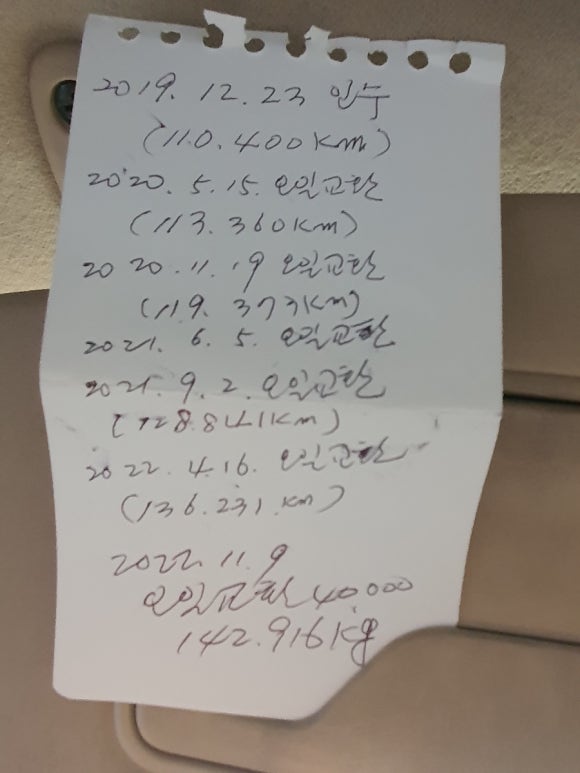 2019. 12. 23 인수
(110.400km)
2020. 5. 15. 오일교환
(113.360km)
2020. 11. 19 오일교환
(119. 373km)
2021. 6. 5. 오일교환
2021. 9. 2. 오일교환
(128.841km)
2022. 4.16. 오일교환
(136.231.km)
2022. 11. 9
오일교환 40,000
142.916kg